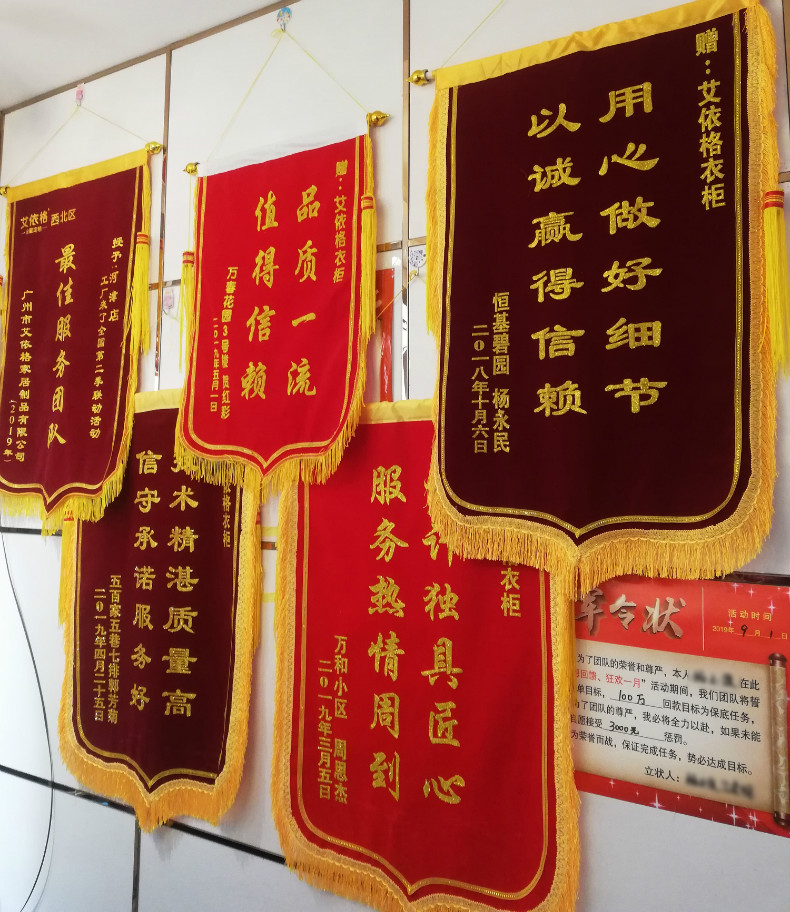 艾依格 西北区
授予：河津店
工厂来了全国第二季联动活动
最佳服务团队
广州市艾依格家居制品有限公司
（2019年）
赠：艾依格衣柜
品质一流
值得信赖
万春花园3号楼 贾红彩
二〇一九年五月一日
赠：艾依格衣柜
用心做好细节
以诚赢得信赖
恒基碧园 杨永民
二〇一八年十月六日
依格衣柜
术精湛质量高
信守承诺服务好
五百家五巷七排郭芳菊
二〇一九年四月二十五日
衣柜
计独具匠心
服务热情周到
万和小区 周恩杰
二〇一九年三月五日
军令状
活动时间
2019年 9 月 1 日
为了团队的荣誉和尊严，本人 在此
回馈、狂欢一月”活动期间，我们团队将誓
单目标，100万 回款目标为保底任务，
为了团队的尊严，我必将全力以赴，如果未能
愿接受 3000元 惩罚。
为荣誉而战，保证完成任务，势必达成目标。
立状人：